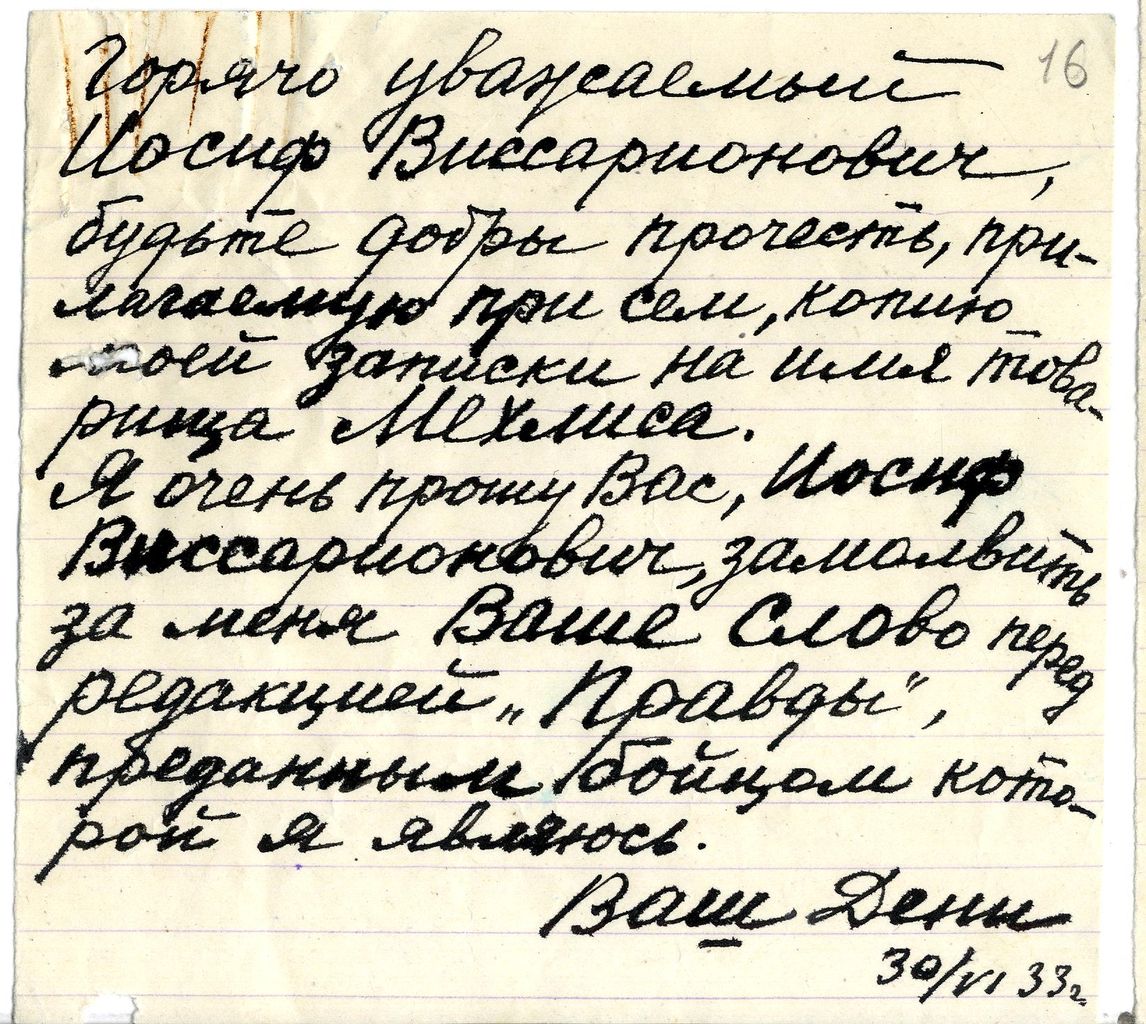 16
Горячо уважаемый
Иосиф Виссарионович,
будьте добры прочесть, при-
лагаемую при сем, копию
моей записки на имя това-
рища Мехлиса.
Я очень прошу Вас, Иосиф
Виссарионович, замолвить
за меня Ваше Слово перед
редакцией „Правды“,
преданным бойцом кото-
рой я являюсь.
Ваш Дени
30/VI 33г.